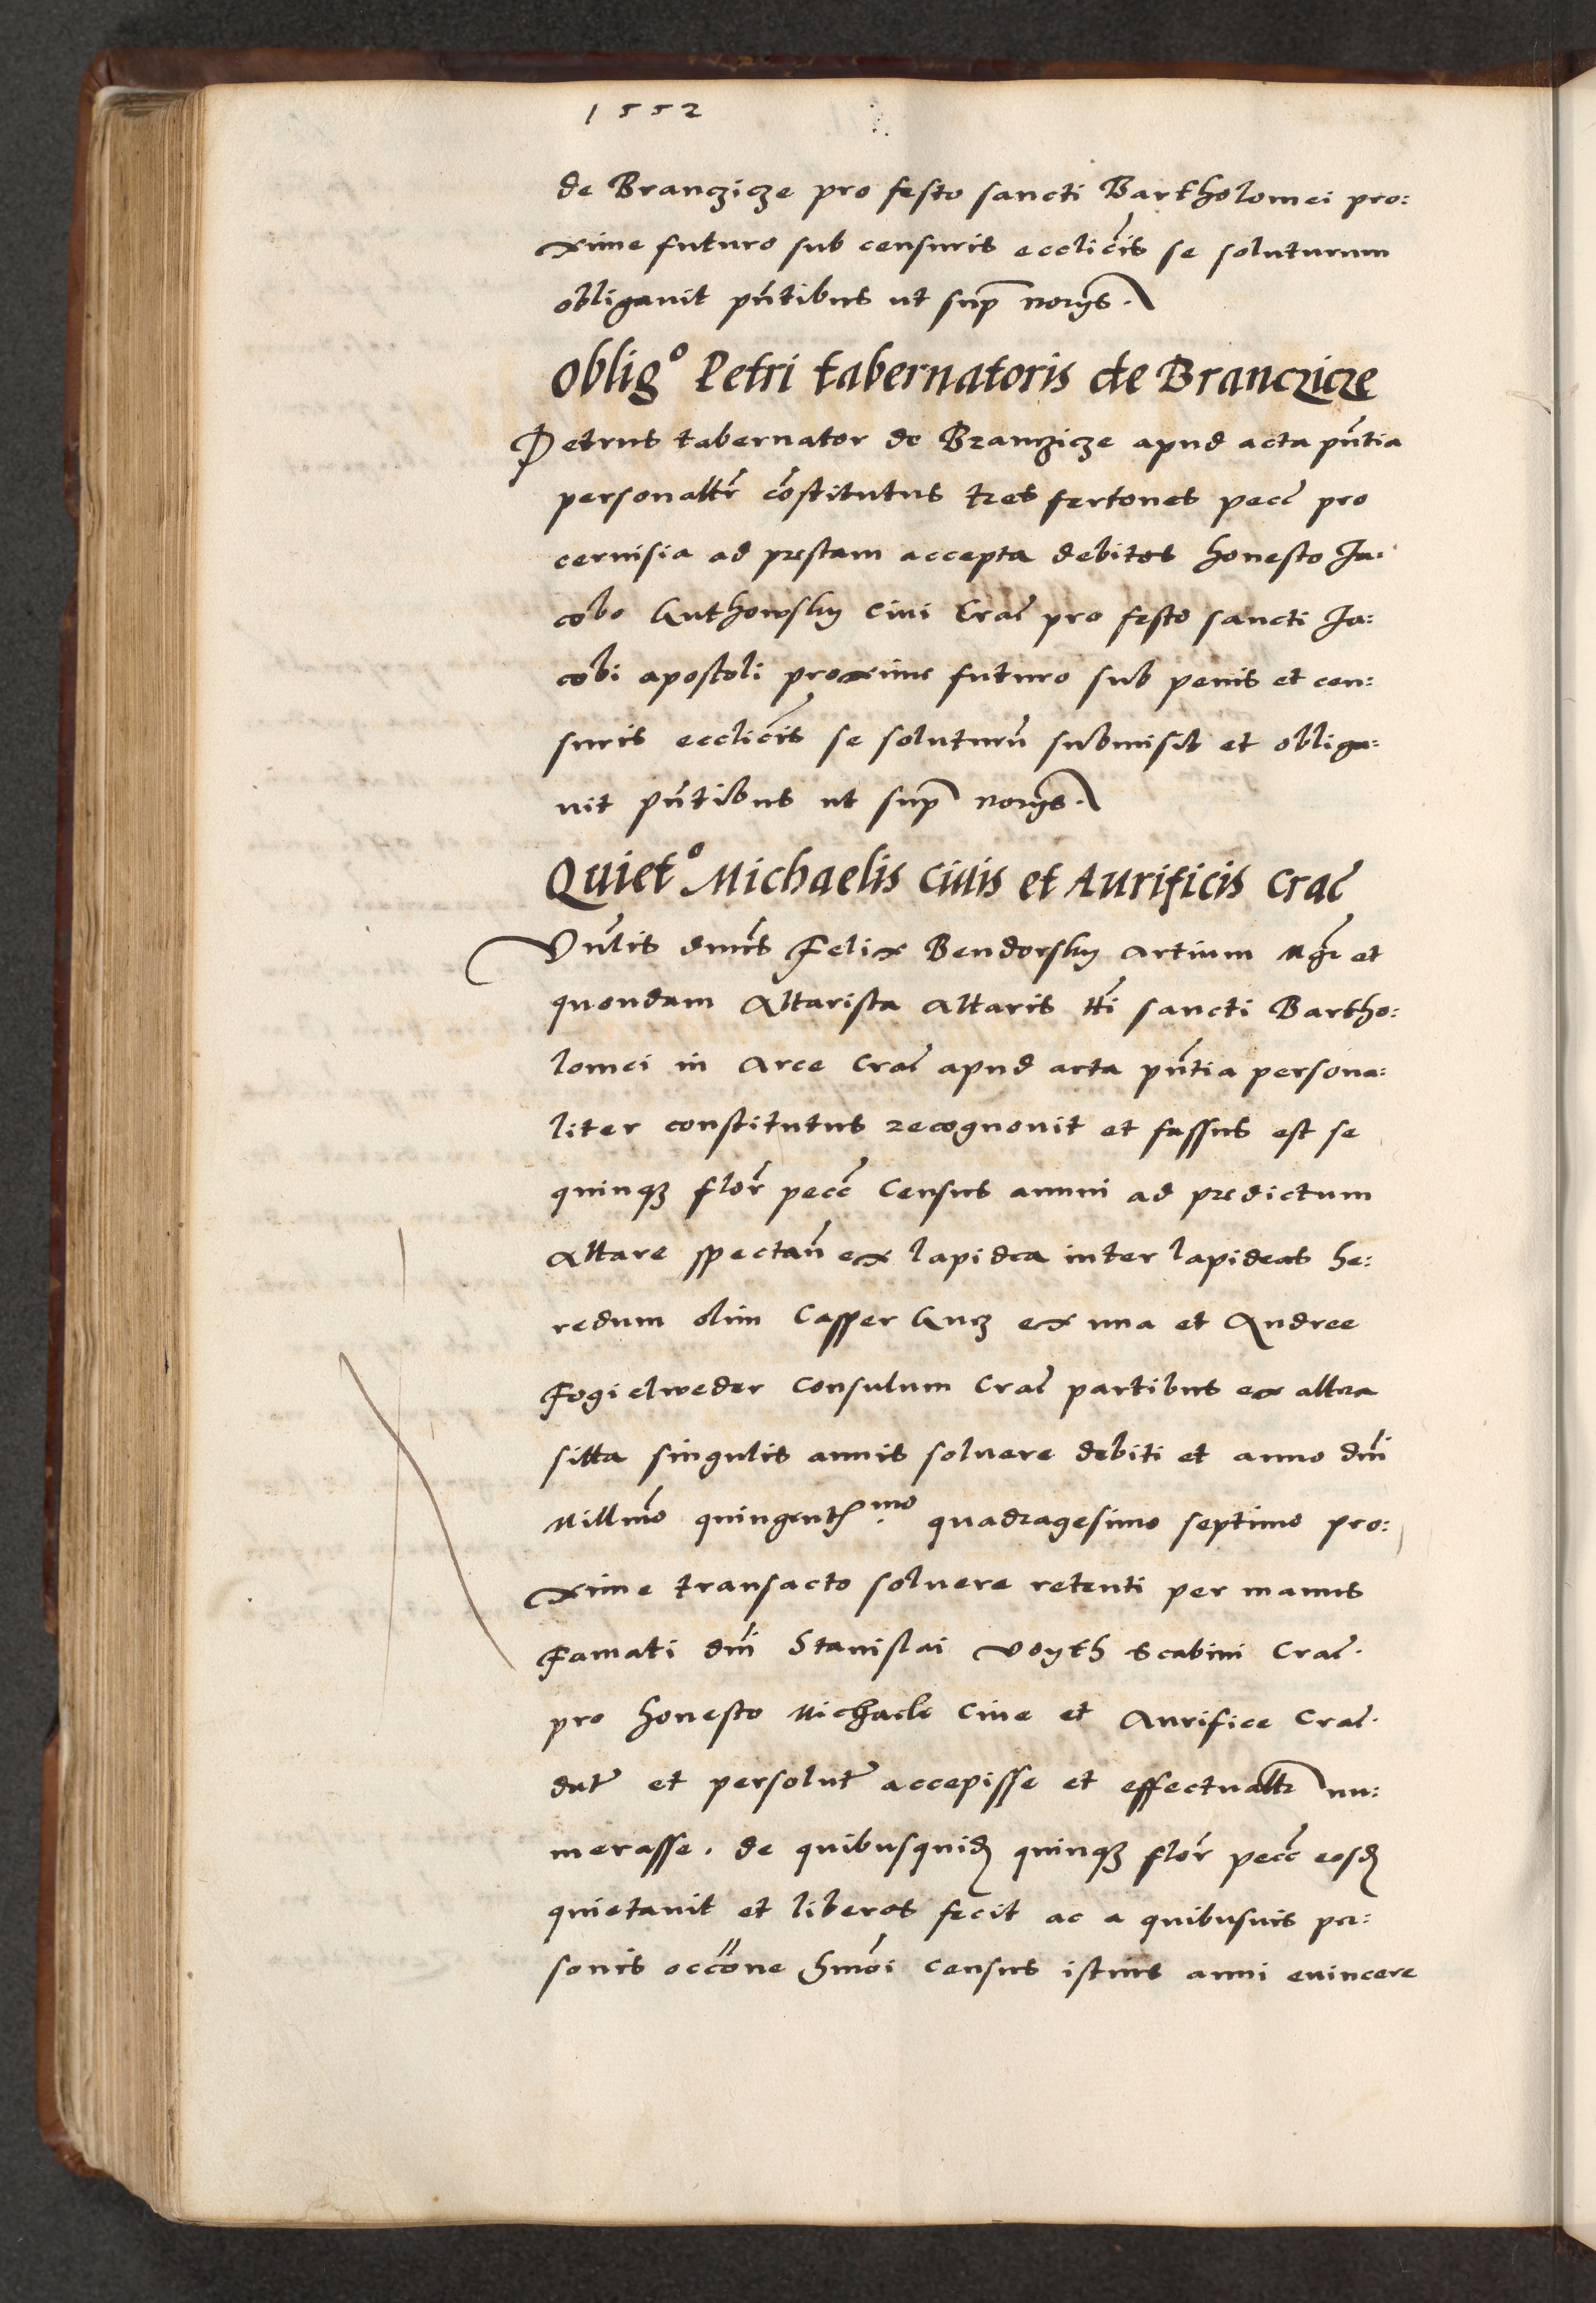 1552
de Branczicze pro festo sancti Bartholomei pro:
xime futuro sub censuris eccl̃icis se soluturum
obligavit pñtibus ut sup̃ norys.
Oblig.º Petri tabernatoris de Branczicze
Petrus tabernator de Branczicze apud acta pñtia
personalr̃ cõstitutus tres fertones pecc̃ pro
cervisia ad prestam accepta debitos honesto Ja:
cobo Kuthowsky civi Crac̃ pro festo sancti Ja:
cobi apostoli proxime futuro sub penis et cen:
suris eccl̃icis se soluturũ submisit et obliga:
vit pñtibus ut sup̃ norys.
Quiet.º Michaelis Civis et Aurificis Crac̃
Vñlis dnũs Felix Bendorsky Artium Mgr̃ et
quondam Altarista Altaris tt̃i sancti Bartho:
lomei in Arce Crac̃ apud acta pñtia persona:
liter constitutus recognovit et fassus est se
quinqȝ flor̃ pecc̃ Census annui ad predictum
Altare spectañ ex lapidea inter lapideas he:
redum olim Casper Gucz ex una et Andree
Fogielweder Consulum Crac̃ partibus ex altera
sitta singulis annis solvere debiti et anno dñi
Millmõ quingentẽ.mo quadragesimo septimo pro:
xime transacto solvere retenti per manus
Famati dñi Stanislai Voyth Scabini Crac̃.
pro honesto Michaele Cive et Aurifice Crac̃.
datr̃ et persolutr̃ accepisse et effectualtr̃ nu:
merasse. de quibusquidẽ quinqȝ flor̃ pecc̃ eosdẽ
quietavit et liberos fecit ac a quibusvis per:
sonis occõne hmõi Census istius anni evincere